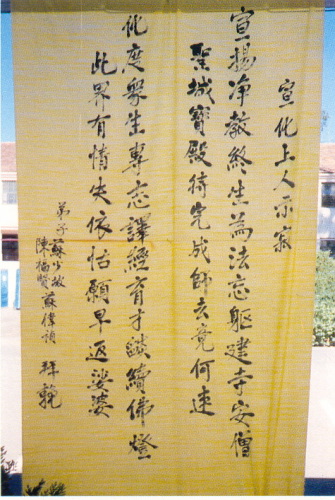 宣化上人示寂
宣揚净教終生為法忘軀建寺安僧
聖城寶殿待完成師去竟何速
化度衆生專志譯經育才續佛燈
此界有情失依怙願早返娑婆
弟子蘇少敏蘇偉
陳拜輓